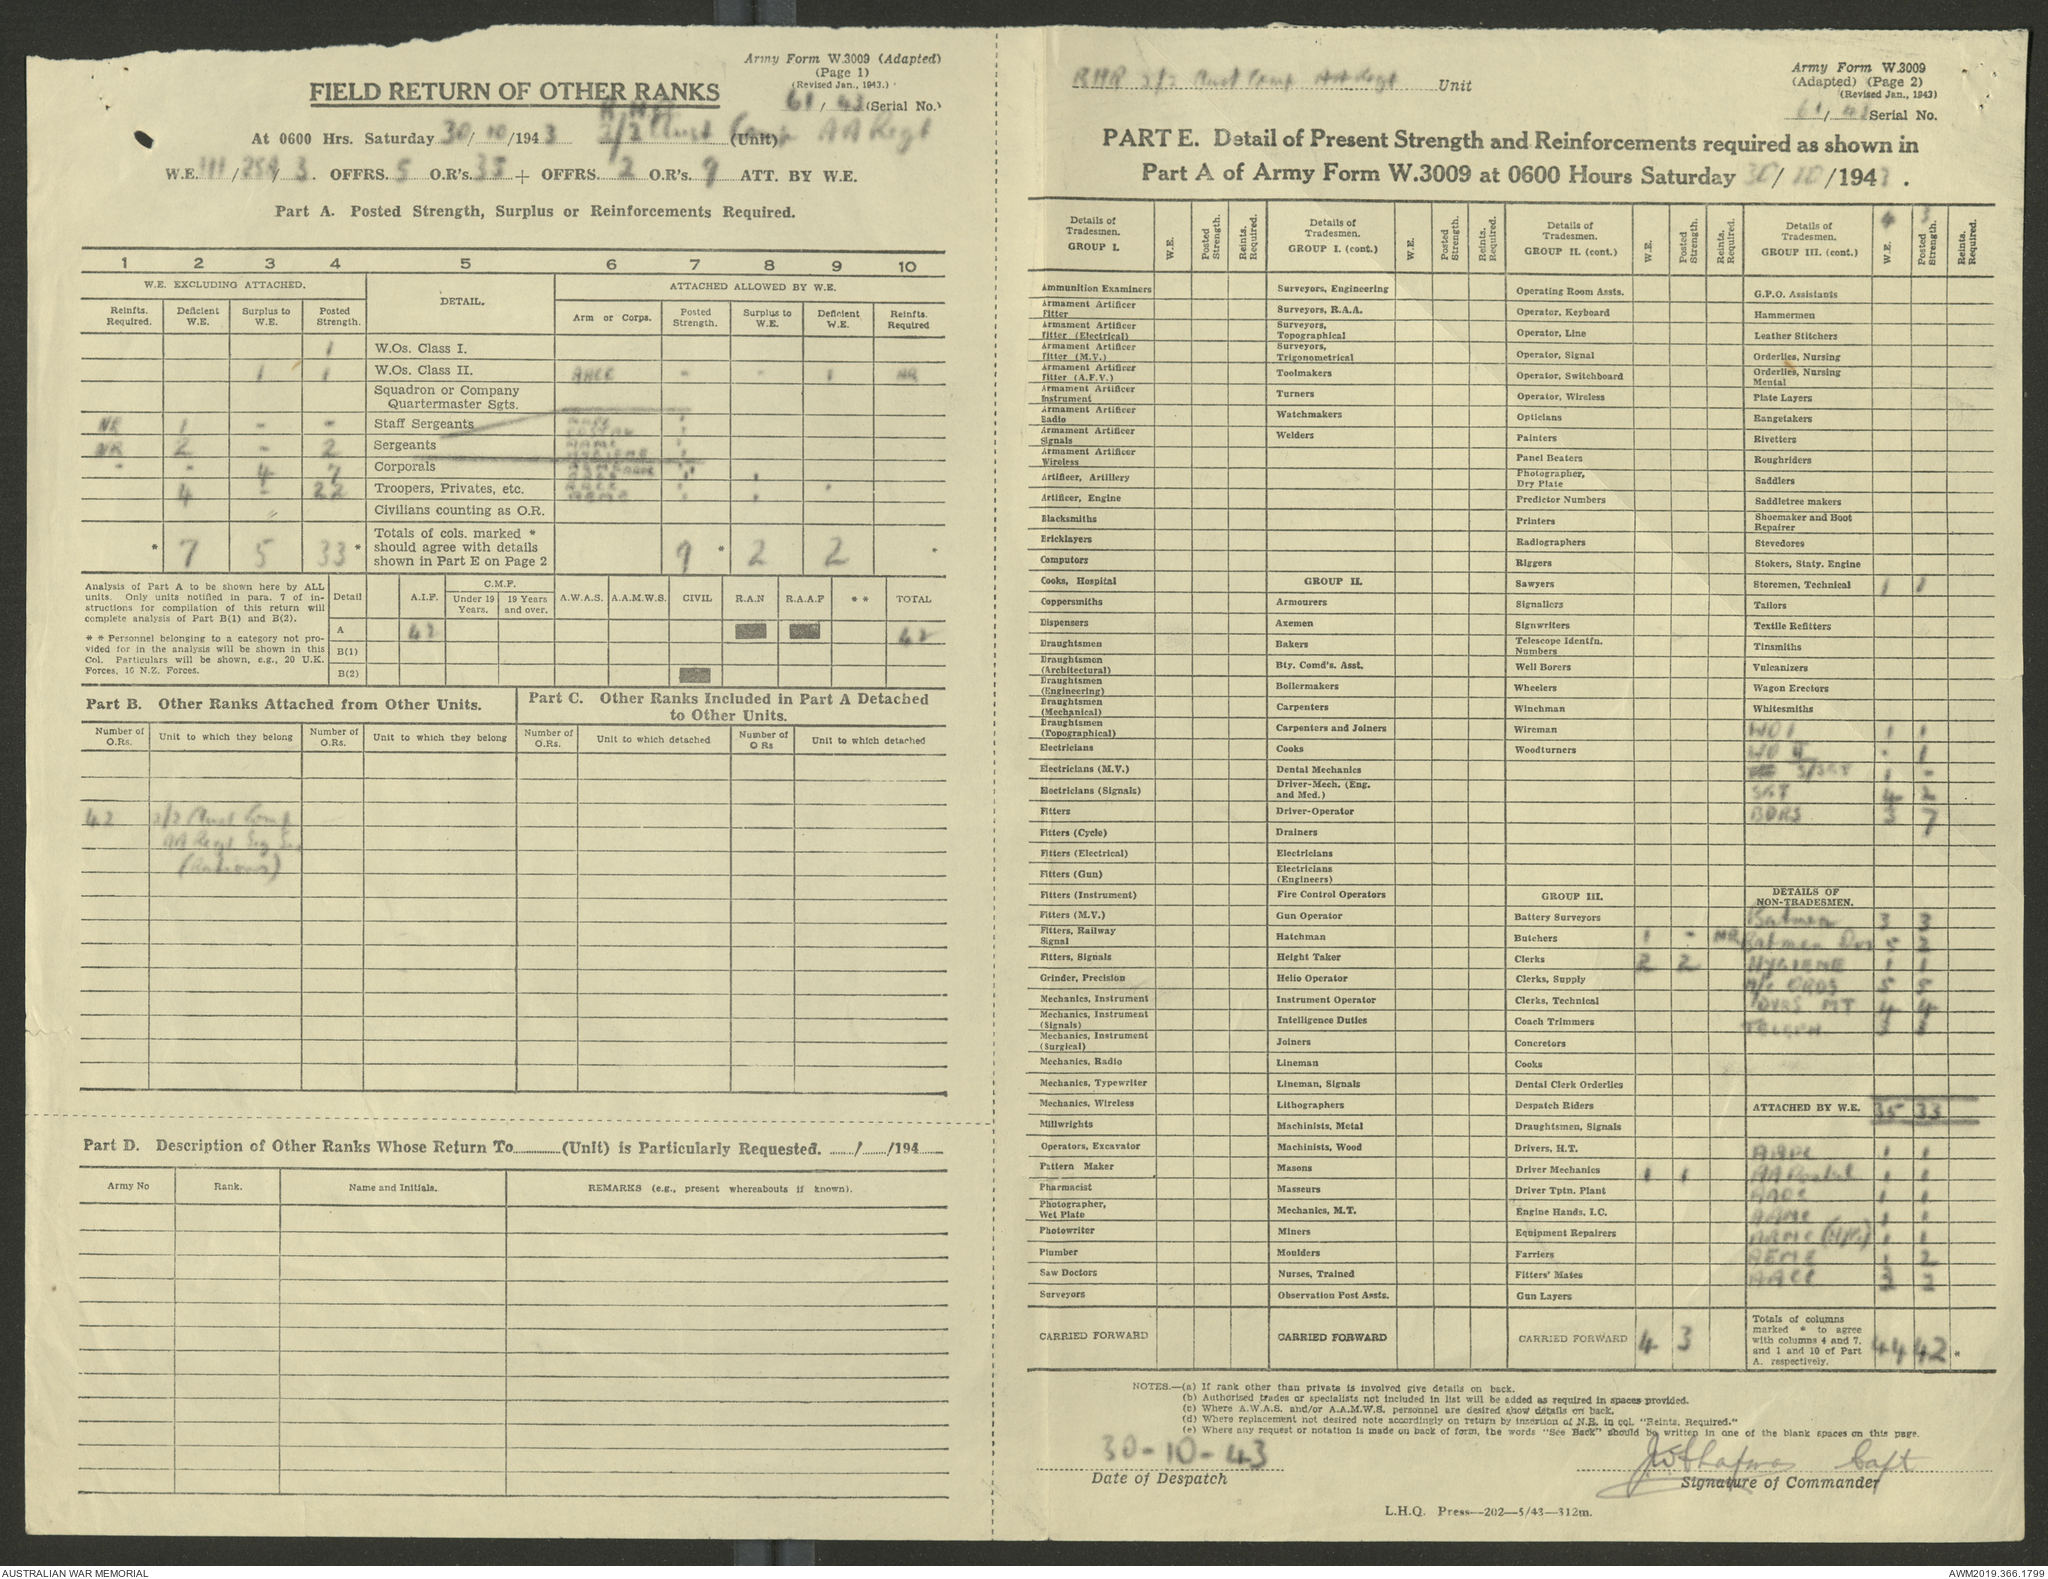 Army Form W.3009 (Adapted)
(Page 1)
(Revised Jan., 1943.)
FIELD RETURN OF OTHER RANKS
61 / 43 (Serial No.)
RHQ
At 0600 Hrs. Saturday 30/10/1943 2/2 Aust Comp AA Regt (Unit)
W.E. III/25A/3. OFFRS. 5 O.R's. 35 + OFFRS. 2 O.R's. 9 ATT. BY W.E.
Part A. Posted Strength, Surplus or Reinforcements Required.
1 2 3 4 5 6 7 8 9 10
W.E. EXCLUDING ATTACHED. DETAIL. ATTACHED ALLOWED BY W.E.
Reinfts. Required. Deficient W.E. Surplus to W.E. Posted Strength. Arm or Corps. Posted Strength. Surplus to W.E. Deficient W.E. Reinfts. Required
1 W.Os. Class I.
1 1 W.Os. Class II. AACC - - 1 NR
Squadron or Company
Quartermaster Sgts.
NR 1 - - Staff Sergeants
POSTAL 1
NR 2 - 2 Sergeants AAMC 1
HYGIENE 1
- - 4 7 Corporals
4 - 22 Troopers, Privates, etc.
Civilians counting as O.R.
* 7 5 33 * Totals of cols. marked * should agree with details shown in Part E on Page 2 9 * 2 2 *
Analysis of Part A to be shown here by ALL
units. Only units notified in para. 7 of in-
structions for compilation of this return will
complete analysis of Part B(1) and B(2).
* * Personnel belonging to a category not pro-
vided for in the analysis will be shown in this
Col. Particulars will be shown, e.g., 20 U.K.
Forces, 16 N.Z. Forces.
Detail A.I.F. C.M.F. Under 19 Years. 19 Years and over. A.W.A.S. A.A.M.W.S. CIVIL R.A.N R.A.A.F * * TOTAL
A 42 42
B(1)
B(2)
Part B. Other Ranks Attached from Other Units.
Number of O.Rs. Unit to which they belong Number of O.Rs. Unit to which they belong
42 2/2 Aust Comp
AA Regt Sig Sec
(Rations)
Part C. Other Ranks Included in Part A Detached
to Other Units.
Number of O.Rs. Unit to which detached Number of O Rs Unit to which detached
Part D. Description of Other Ranks Whose Return To............(Unit) is Particularly Requested. ....../....../194......
Army No Rank. Name and Initials. REMARKS (e.g., present whereabouts if known).
RHQ 2/2 Aust Comp AA Regt Unit
Army Form W.3009
(Adapted) (Page 2)
(Revised Jan., 1943)
61/43 Serial No.
PART E. Detail of Present Strength and Reinforcements required as shown in
Part A of Army Form W.3009 at 0600 Hours Saturday 30/10/1943.
Details of Tradesmen. GROUP I. W.E. Posted Strength. Reints. Required.
Ammunition Examiners
Armament Artificer Fitter
Armament Artificer Fitter (Electrical)
Armament Artificer Fitter (M.V.)
Armament Artificer Fitter (A.F.V.)
Armament Artificer Instrument
Armament Artificer Radio
Armament Artificer Signals
Armament Artificer Wireless
Artificer, Artillery
Artificer, Engine
Blacksmiths
Bricklayers
Computors
Cooks, Hospital
Coppersmiths
Dispensers
Draughtsmen
Draughtsmen (Architectural)
Draughtsmen (Engineering)
Draughtsmen (Mechanical)
Draughtsmen (Topographical)
Electricians
Electricians (M.V.)
Electricians (Signals)
Fitters
Fitters (Cycle)
Fitters (Electrical)
Fitters (Gun)
Fitters (Instrument)
Fitters (M.V.)
Fitters, Railway Signal
Fitters, Signals
Grinder, Precision
Mechanics, Instrument
Mechanics, Instrument (Signals)
Mechanics, Instrument (Surgical)
Mechanics, Radio
Mechanics, Typewriter
Mechanics, Wireless
Millwrights
Operators, Excavator
Pattern Maker
Pharmacist
Photographer, Wet Plate
Photowriter
Plumber
Saw Doctors
Surveyors
CARRIED FORWARD
Details of Tradesmen. GROUP I. (cont.) W.E. Posted Strength. Reints. Required.
Surveyors, Engineering
Surveyors, R.A.A.
Surveyors, Topographical
Surveyors, Trigonometrical
Toolmakers
Turners
Watchmakers
Welders
GROUP II.
Armourers
Axemen
Bakers
Bty. Comd's. Asst.
Boilermakers
Carpenters
Carpenters and Joiners
Cooks
Dental Mechanics
Driver-Mech. (Eng. and Med.)
Driver-Operator
Drainers
Electricians
Electricians (Engineers)
Fire Control Operators
Gun Operator
Hatchman
Height Taker
Helio Operator
Instrument Operator
Intelligence Duties
Joiners
Lineman
Lineman, Signals
Lithographers
Machinists, Metal
Machinists, Wood
Masons
Masseurs
Mechanics, M.T.
Miners
Moulders
Nurses, Trained
Observation Post Assts.
CARRIED FORWARD
Details of Tradesmen. GROUP II. (cont.) W.E. Posted Strength. Reints. Required.
Operating Room Assts.
Operator, Keyboard
Operator, Line
Operator, Signal
Operator, Switchboard
Operator, Wireless
Opticians
Painters
Panel Beaters
Photographer, Dry Plate
Predictor Numbers
Printers
Radiographers
Riggers
Sawyers
Signallers
Signwriters
Telescope Identfn. Numbers
Well Borers
Wheelers
Winchman
Wireman
Woodturners
GROUP III.
Battery Surveyors
Butchers 1 - NR
Clerks 2 2
Clerks, Supply
Clerks, Technical
Coach Trimmers
Concretors
Cooks
Dental Clerk Orderlies
Despatch Riders
Draughtsmen, Signals
Drivers, H.T.
Driver Mechanics 1 1
Driver Tptn. Plant
Engine Hands, I.C.
Equipment Repairers
Farriers
Fitters' Mates
Gun Layers
CARRIED FORWARD 4 3
Details of Tradesmen. GROUP III. (cont.) 4 W.E. 3 Posted Strength. Reints. Required.
G.P.O. Assistants
Hammermen
Leather Stitchers
Orderlies, Nursing
Orderlies, Nursing Mental
Plate Layers
Rangetakers
Rivetters
Roughriders
Saddlers
Saddletree makers
Shoemaker and Boot Repairer
Stevedores
Stokers, Staty. Engine
Storemen, Technical 1 1
Tailors
Textile Refitters
Tinsmiths
Vulcanizers
Wagon Erectors
Whitesmiths
WO I 1 1
WO II - 1
S/SGT 1 -
SGT 4 2
BDRS 3 7
DETAILS OF NON-TRADESMEN.
Batmen 3 3
Batmen Dvrs 5 2
HYGIENE 1 1
M/C ORDS 5 5
DVRS MT 4 4
TELEPH 3 3
ATTACHED BY W.E. 35 33
AAPC 1 1
AA Postal 1 1
AAOC 1 1
AAMC 1 1
AAMC (Hyg) 1 1
AEME 1 2
AACC 3 2
Totals of columns marked * to agree with columns 4 and 7, and 1 and 10 of Part A. respectively. 44 42 *
NOTES.—(a) If rank other than private is involved give details on back.
(b) Authorised trades or specialists not included in list will be added as required in spaces provided.
(c) Where A.W.A.S. and/or A.A.M.W.S. personnel are desired show details on back.
(d) Where replacement not desired note accordingly on return by insertion of N.R. in col. "Reints. Required."
(e) Where any request or notation is made on back of form, the words "See Back" should be written in one of the blank spaces on this page.
30-10-43
Date of Despatch
Capt
Signature of Commander
L.H.Q. Press—202—5/43—312m.
AUSTRALIAN WAR MEMORIAL
AWM2019.366.1799